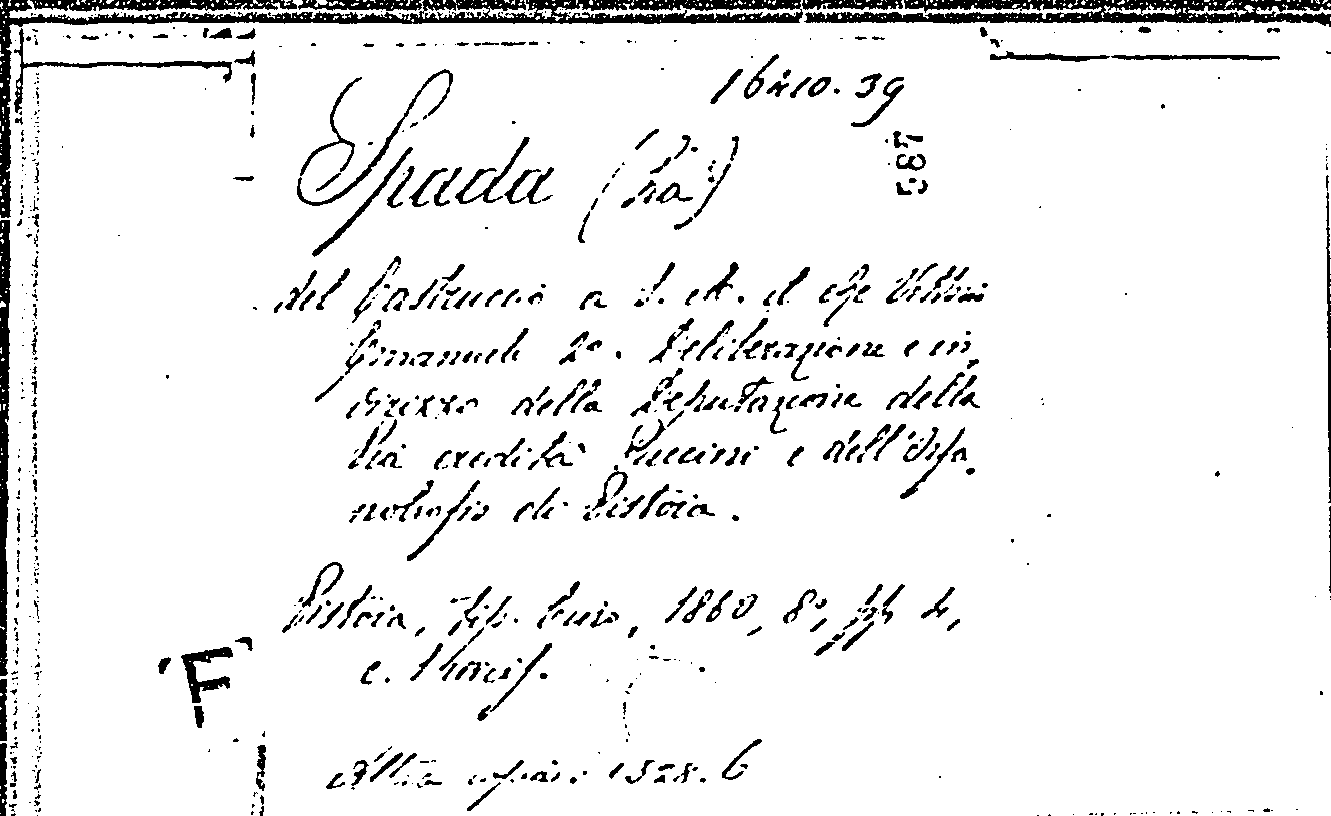 1640.39
587
Spada (La)
del Castruccio a S. M. il Re Vittorio
Emanuele 2º. Deliberazione e in
dirizzo della Deputazione della
Pia eredità Puccini e dell'Orfa
notrofio di Pistoia.
Pistoia, Tip. Cino, 1860, 8º, pp. 4,
c. 1 horcif.
F
Altra copia: 1328.6